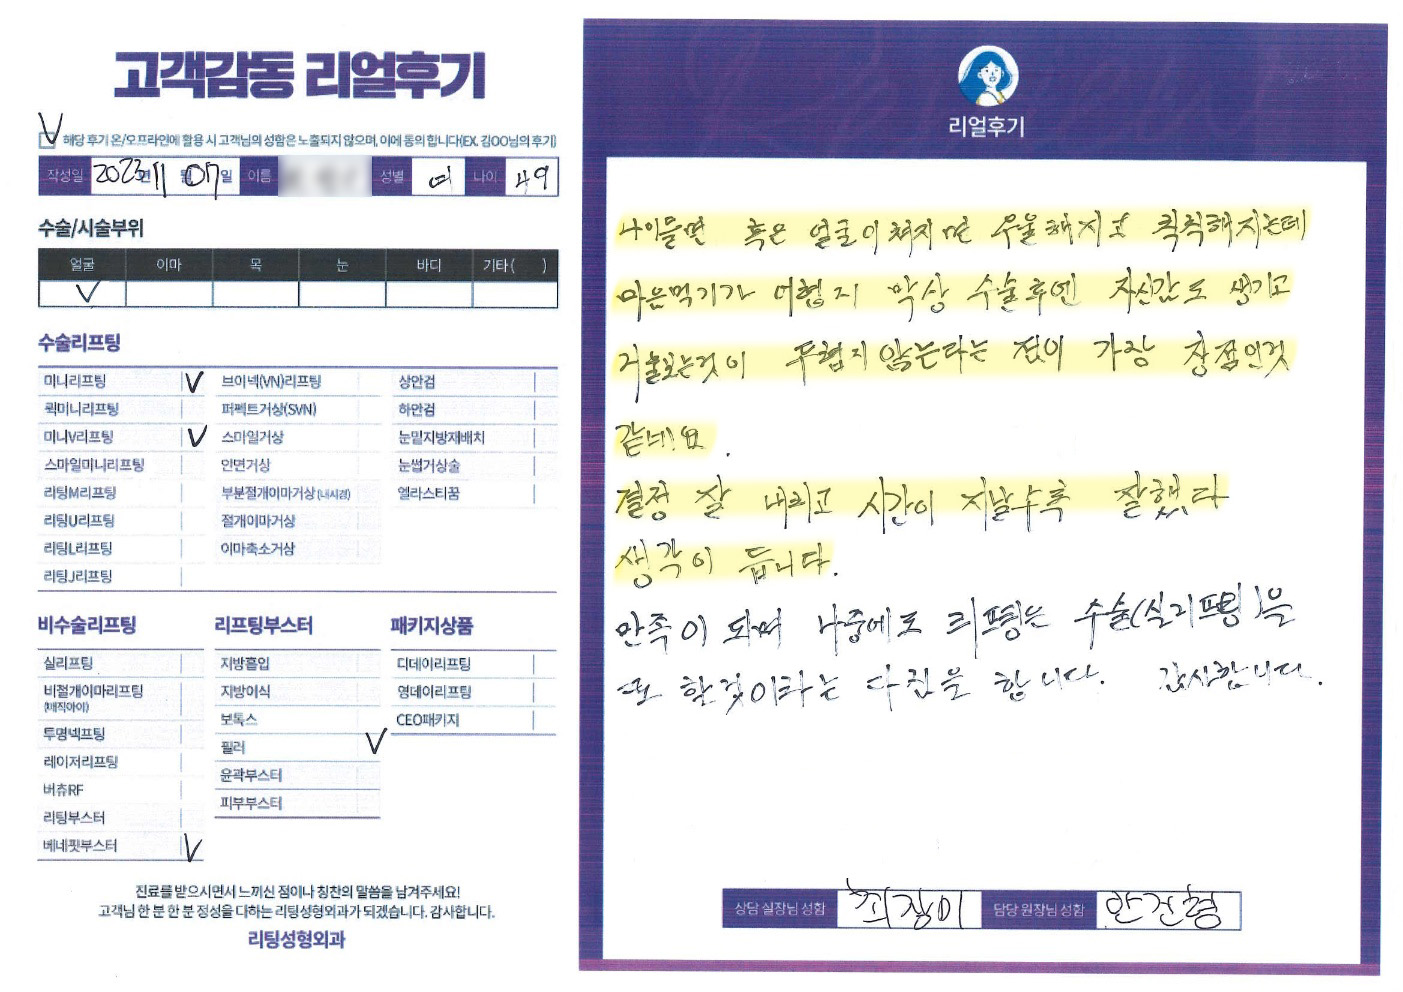 고객감동 리얼후기
해당 후기 온/오프라인에 활용 시 고객님의 성함은 노출되지 않으며, 이에 동의 합니다(EX. 김OO님의 후기)
작성일 2023년 11월 07일 이름 성별 여 나이 49
수술/시술부위
얼굴 이마 목 눈 바디 기타( )
수술리프팅
미니리프팅 브이넥(VN)리프팅 상안검
퀵미니리프팅 퍼펙트거상(SVN) 하안검
미니V리프팅 스마일거상 눈밑지방재배치
스마일미니리프팅 안면거상 눈썹거상술
리팅M리프팅 부분절개이마거상(내시경) 엘라스티꿈
리팅U리프팅 절개이마거상
리팅L리프팅 이마축소거상
리팅J리프팅
비수술리프팅 리프팅부스터 패키지상품
실리프팅 지방흡입 디데이리프팅
비절개이마리프팅 지방이식 영데이리프팅
(매직아이)
투명넥프팅 보톡스 CEO패키지
레이저리프팅 필러
버츄RF 윤곽부스터
리팅부스터 피부부스터
베네핏부스터
진료를 받으시면서 느끼신 점이나 칭찬의 말씀을 남겨주세요!
고객님 한 분 한 분 정성을 다하는 리팅성형외과가 되겠습니다. 감사합니다.
리팅성형외과
리얼후기
나이들면 혹은 얼굴이 쳐지면 우울해지고 칙칙해지는데
마음먹기가 어렵지 막상 수술후엔 자신감도 생기고
거울보는것이 두렵지 않는다는 점이 가장 장점인것
같네요.
결정 잘 내리고 시간이 지날수록 잘했다
생각이 듭니다.
만족이 되며 나중에도 리프팅는 수술(실리프팅)을
또 할것이라는 다짐을 합니다. 감사합니다.
상담 실장님 성함 최장미 담당 원장님 성함 안건형